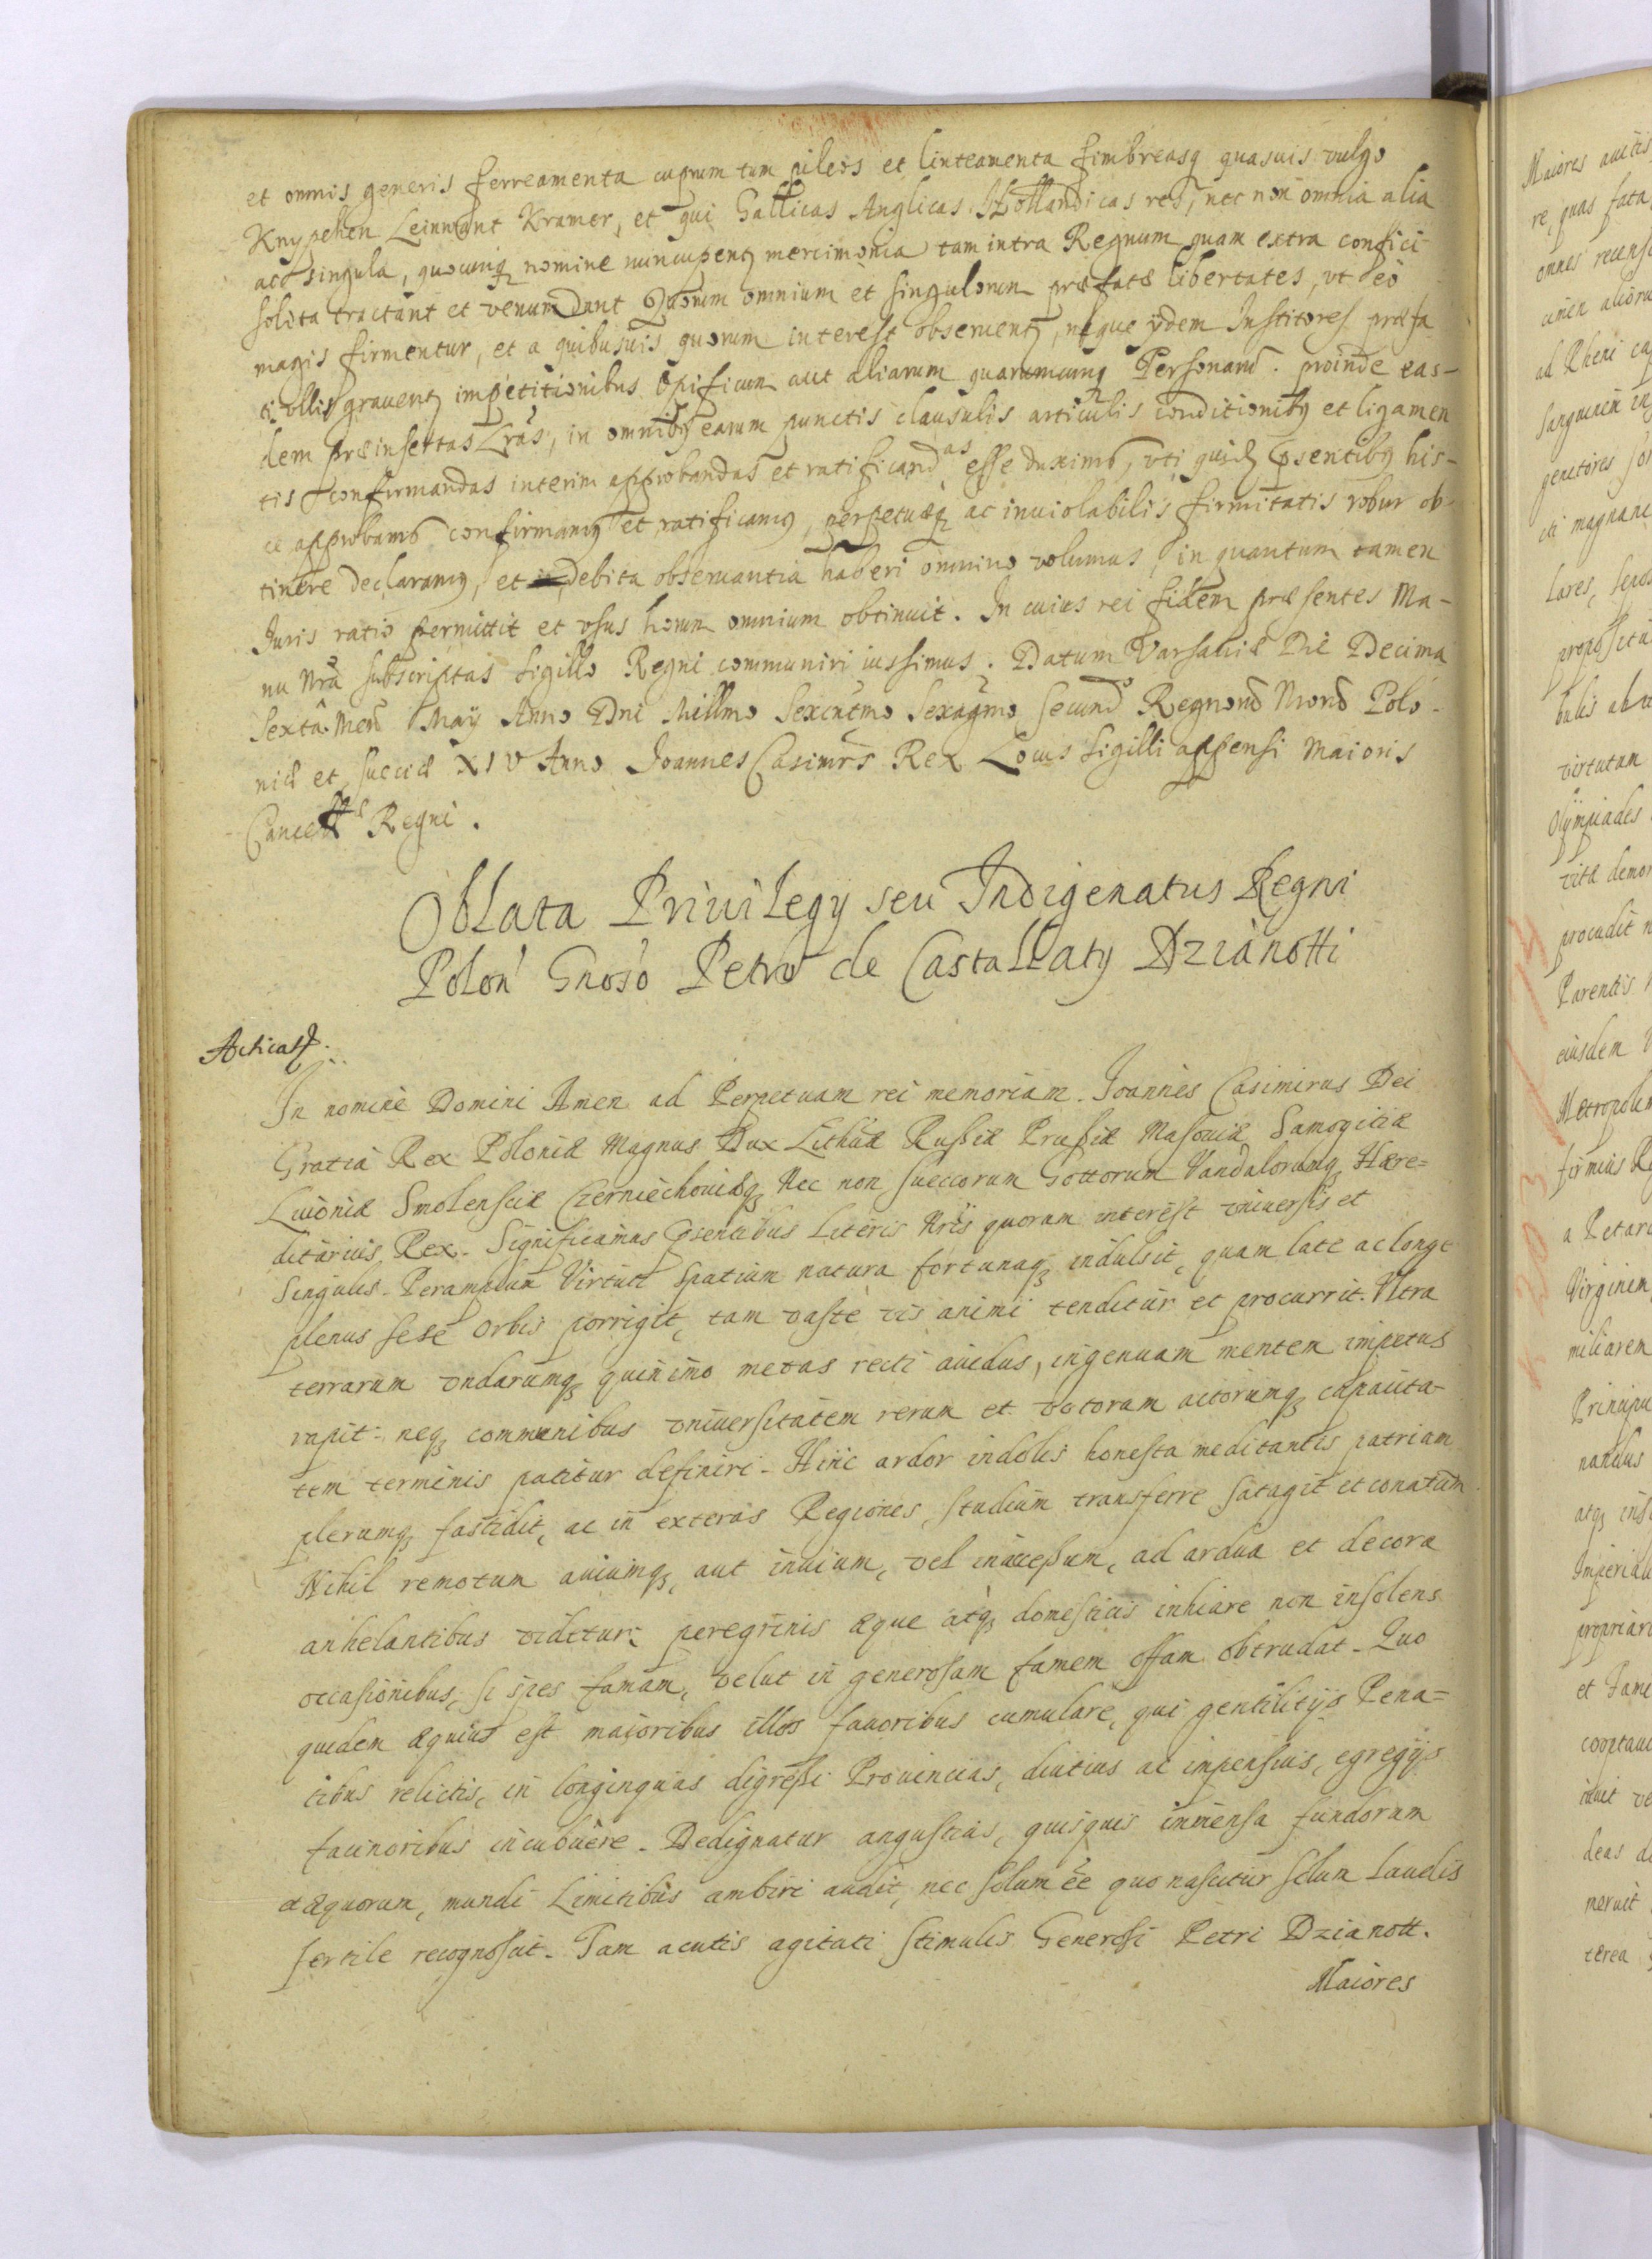 et omnis generis ferreamenta cuprum tum pileos et linteamenta fimbreasq quasuis vulgo
Knypchen Leinnant Kramer, et qui Gallicas Anglicas Hollandicas res, nec non omnia alia
ac singula, quocunq nomine nuncupentz mercimonia tam intra Regnum quam extra confici
solita tractant et venumdant Quorum omnium et singulorum præfatæ libertates, vt eò
magis firmentur, et a quibusuis quorum interest obseruentz, neque ijdem Institores præfa
ti vllis grauentz impetitionibus Opificum aut aliarum quarumcunq Personarũ. proinde eas-
dem præinsertas Lrãs, in omnibz earum punctis clausulis articulis conditionibz et ligamen
tis confirmandas interim approbandas et ratificandas esse duximus, vti quidẽ psentibz his-
ce approbamus confirmamus et ratificamus, perpetuæq ac inuiolabilis firmitatis robur ob-
tinere declaramus, et debita obseruantia haberi omnino volumus, in quantum tamen
Iuris ratio permittit et vsus horum omnium obtinuit. In cuius rei fidem præsentes Ma-
nu Nrã subscriptas Sigillo Regni communiri iussimus. Datum Varsauiæ Die Decima
Sexta Mens Maij Anno Dni Millmo Sexcntmo Sexagmo Secundo Regnorũ Nrorũ Polo-
niæ et Sueciæ XIV Anno Joannes Casimrs Rex Locus Sigilli appensi Maioris
Cancellæ Regni.
Oblata Priuilegy seu Indigenatus Regni
Polon Gnoso Petro de Castallaty Dzianotti
Acticatz.
In nomine Domini Amen ad Perpetuam rei memoriam. Joannes Casimirus Dei
Gratia Rex Poloniæ Magnus Dux Lithuæ Russiæ Prussiæ Masouiæ Samogitiæ
Liuoniæ Smolensciæ Czerniechouiæq Nec non Sueccorum Gottorum Vandalorumq Hære=
ditarius Rex. Significamus psentibus Literis Nris quorum interest vniuersis et
Singulis. Peramplum Virtuti spatium natura fortunaq indulsit, quam late ac longe
plenus sese Orbis porrigit, tam vaste vis animi tenditur et procurrit. Vltra
terrarum vndarumq quinimo metas recti auidus, ingenuam mentem impetus
rapit: neq communibus vniuersitatem rerum et votorum actorumq capacita-
tem terminis patitur definiri. Hinc ardor indolis honesta meditantis patriam
plerumq fastidit, ac in exteras Regiones, studium transferre satagit et conatum
Nihil remotum auiumq, aut inuium, vel inaccessum, ad ardua et decora
anhelantibus viditur: peregrinis æque atq domesticis inhiare non insolens
occasionibus, si spes famam, velut in generosam famem offam obtrudat. Quo
quidem æquius est maioribus illos fauoribus cumulare, qui gentilitijs Pena=
tibus relictis, in longinquas digressi Prouincias, diutius ac impensius, egregijs
facinoribus incubuere. Dedignatur angustias, quisquis immensa fundorum
et æquorum, mundi Limitibus ambiri audit, nec solum ẽe quo nascitur solum Laudis
fertile recognoscit. Tam acutis agitati stimulis Generosi Petri Dzianott.
Maiores